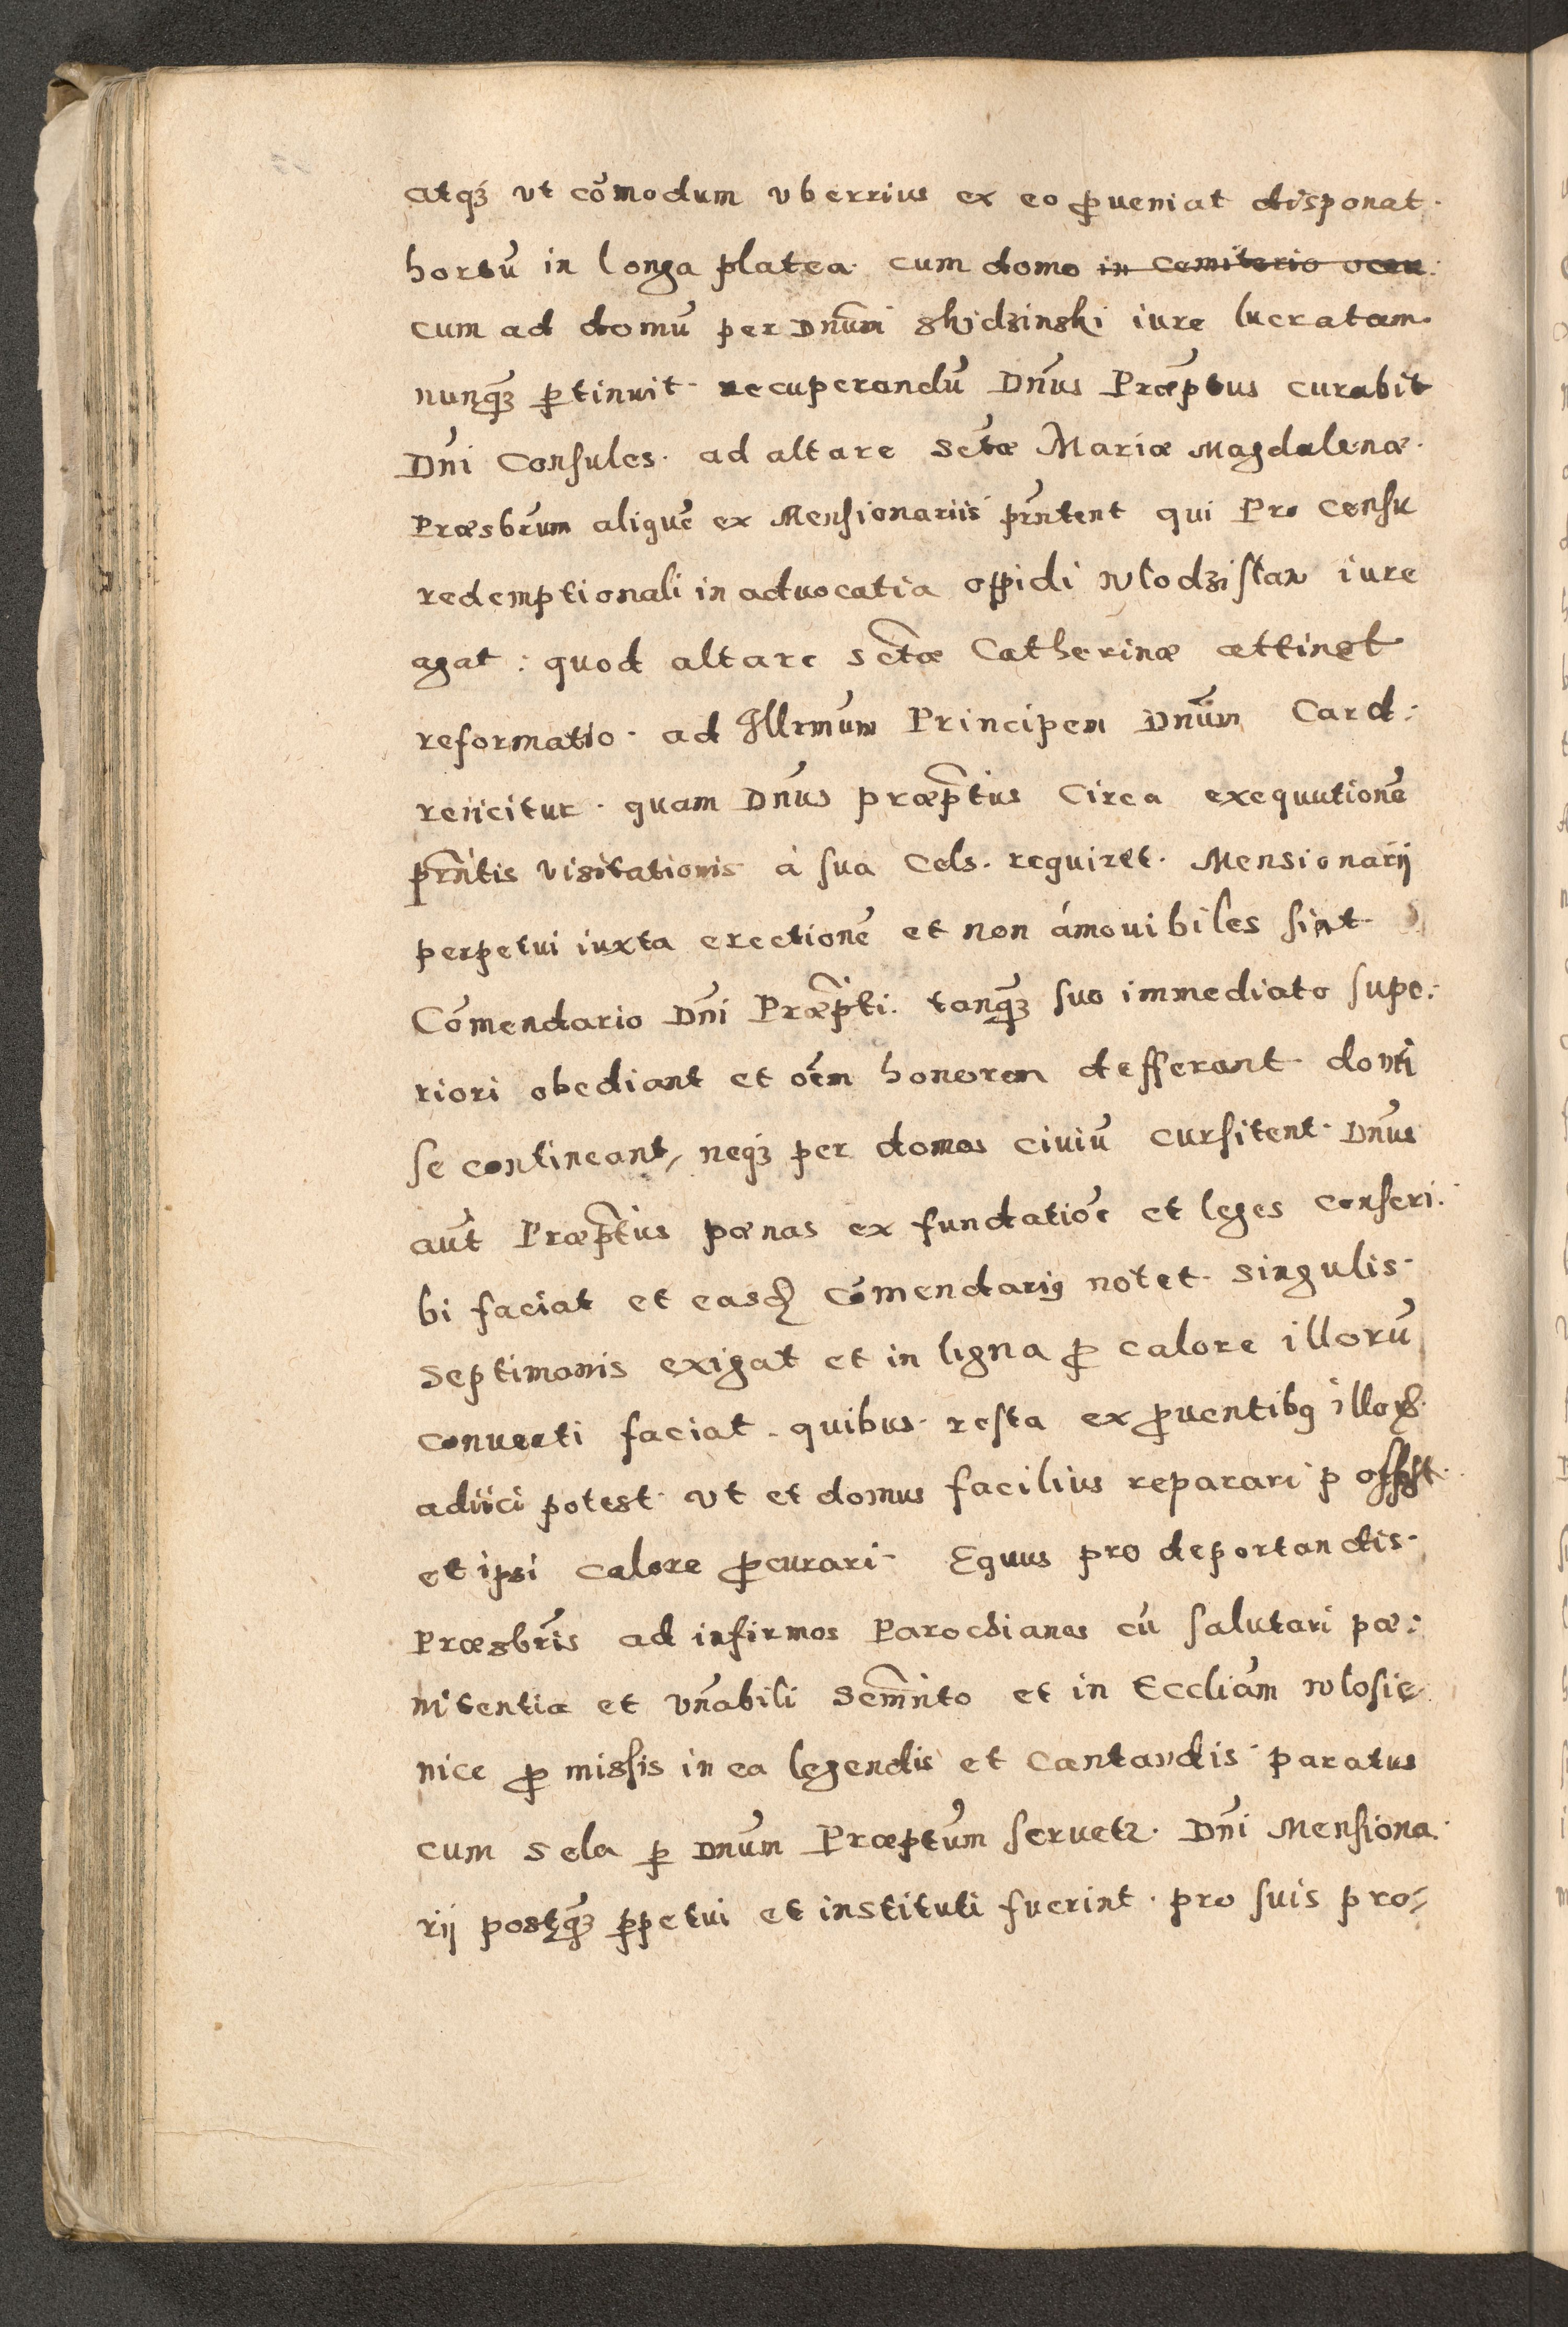 atqȝ ut cōmodum vberrius ex eo ꝓueniat disponat.
hortū in longa platea cum domo in cemiterio ocou:
cum ad domū per Dnūm ghidzinski iure lucratam.
nunqȝ ꝑtinuit. recuperandū Dnūs Præptus curabit
Dnī Consules. ad altare Sctæ Mariæ Magdalenæ.
Præsbrūm aliquē ex Mensionariis prntent qui Pro censu
redemptionali in aduocatia oppidi wlodzislaw iure
agat: quod altare Sctæ Catherinæ attinet
reformatio. ad Illrmūm Principem Dnūm Card:
reiicitur. quam Dnūs præptus Circa exequutionē
prntis visitationis à sua Cels. requiret. Mensionarij
perpetui iuxta erectionē et non ámouibiles sint
Cōmendario Dnī Præpti. tanqȝ suo immediato supe:
riori obediant et oēm honorem defferant. domi
se contineant, neqȝ per domos ciuiū cursitent. Dnūs
aūt Præptus pœnas ex fundatioē et leges conscri:
bi faciat et easdꝫ Cōmendariꝰ notet. singulis
septimanis exigat et in ligna ꝓ calore illorū
conuerti faciat. quibus. resta ex ꝓuentibꝰ illoꝝ
adiici potest. ut et domus facilius reparari possint
et ipsi calore ꝓcurari. Equus pro deportandis
Præsbrīs ad infirmos Parochianos cū salutari pœ:
nitentia et vnābili Scmnto et in Eccliām wlosie
nice ꝓ missis in ea legendis et cantandis paratus
cum sela ꝑ Dnūm Præptūm seruetr. Dnī Mensiona.
rij postqȝ ꝑpetui et instituti fuerint. pro suis pro: